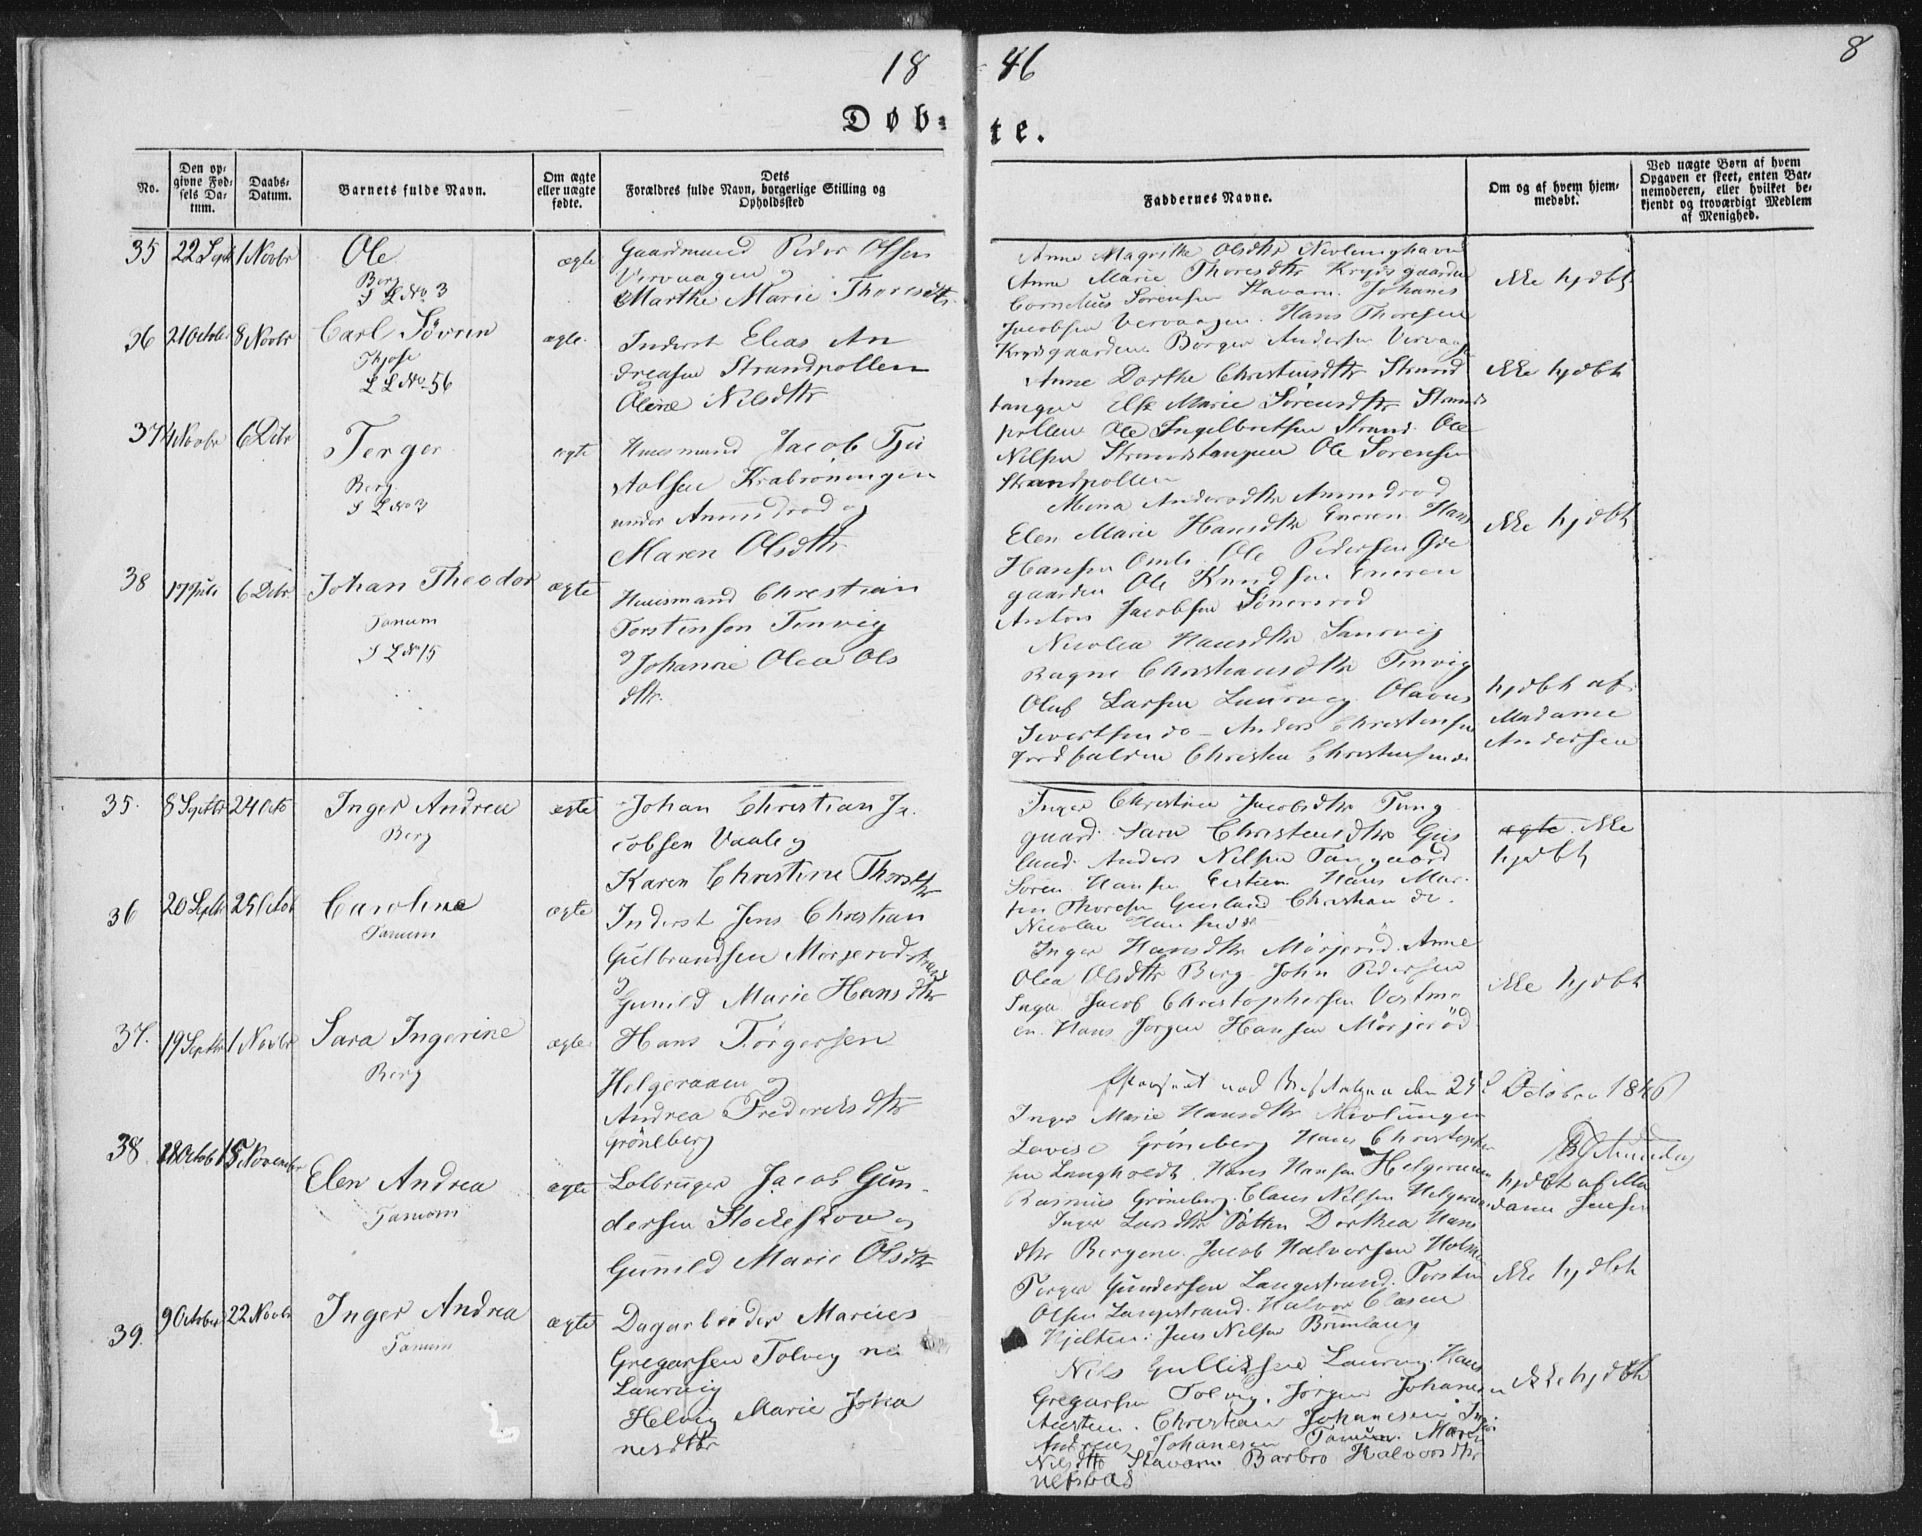 18 46
8
Døb-
te.
No.
Den op-
givne Fød-
sels Da-
tum.
Daabs-
Datum.
Barnets fulde Navn.
Om ægte
eller uægte
fødte.
Dets
Forældres fulde Navn, borgerlige Stilling og
Opholdssted
Faddernes Navne.
Om og af hvem hjem-
medøbt.
Ved uægte Børn af hvem
Opgaven er skeet, enten Bar-
nemoderen, eller hvilket be-
kjendt og troværdigt Medlem
af Menighed.
35 22 Septr 1 Novbr Ole ægte
Berg
S L No 3
Gaardmand Peder Olsen
Vervaagen og
Marthe Marie Thoresdtr
Anne Magrethe Olsdtr Nevlunghavn
Anne Marie Thoresdtr Krydsgaarden
Cornelius Sørensen Stavern Johanes
Jacobsen Vervaagen. Hans Thoresen
Krydsgaarden Børger Andersen Vervaag
ikke hjdbt
36 21 October 8 Novbr Carl Søvrin ægte
Thjose
S L No 56
Inderst Elias An
dreasen Strandpollen
Oline Nilsdtr
Anne Dorthe Christensdtr Strand
tangen Else Marie Sørensdtr Strand
pollen Ole Ingelbretsen Strand Ole
Nilsen Strandstangen Ole Sørensen
Strandpollen
ikke hjdbt
37 4 Novbr 6 Debr Terger ægte
Berg
S L No 3
Huusmand Jacob Tju
stolsen Krabroningen
under Amundrød og
Maren Olsdtr
Mona Andersdtr Amundrød
Elen Marie Hansdtr Eneren Hans
Hansen Omli Ole Pedersen Øde
gaarden Ole Knudsen Eneren
Anton Jacobsen Sønersrød
ikke hjdbt
38 17 Juli 6 Debr Johan Theodor ægte
Tanum
S L No 15
Huusmand Christian
Torstensen Tenvig
og Johanne Olea Ols
dtr.
Nicolea Hansdtr Tenvig
Ragne Christiansdtr Tenvig
Oluf Larsen Laurvig Olavus
Sivertsen do - Anders Christensen
Jordfalden Christen Christensen do
hjdbt af
Madame
Andersen
35. 8 Septbr 24 Octo Inger Andrea ægte
Berg
Johan Christian Ja
cobsen Vaale og
Karen Christine Thorsdtr
Inger Christine Jacobsdtr Tung
gaard. Sara Christensdtr Gus
land. Anders Nilsen Tangaard
Søren Hansen Hans Mar
tin Thoresen Gusland Christian do.
Nicolai Hansen do
ægte. ikke
hjdbt
36 20 Septr 25 Octob Caroline ægte
Tanum
Inderst Jens Christian
Gulbrandsen Mørjerød strand
og
Gunild Marie Hansdtr
Inger Hansdtr Mørjerød. Anne
Olea Olsdtr Berg John Pedersen
Inga Jacob Christophersen Vestme
en. Hans Jørgen Hansen Mørjerød
ikke hjdbt
37. 19 Septbr 1 Novbr Sara Ingerine ægte
Berg
Hans Tørgersen
Helgeraaen og
Andrea Frederiksdtr
Grønberg
den 25 October 1846
Inger Marie Hansdtr Nevlungen
Lovise Grønberg Hans Christophe
sen Langholdt. Hans Hansen Helgeraaen
Rasmus Grønberg. Claus Nilsen Helgeraae
hjdbt af Ma
dame Jensen
38 28 Octob 15 November Elen Andrea ægte
Tanum
Lolbruger Jacob Gun
dersen Stokeskov og
Gunild Marie Olsdtr
Inger Larsdtr Pøtten Dorthea Hans
dtr Bergene. Jacob Halvorsen Holm
Terger Gundersen Langestrand. Torsten
Olsen Langestrand. Halvor Clasen
Hjelten. Jens Nilsen Brunlaug
ikke hjdbt
39. 9 October 22 Novbr Inger Andrea ægte
Tanum
Dagarbeider Marius
Gregarsen Tolvig
Laurvig
Helvig Marie Joha
nesdtr
Nils Gulliksen Laurvig. Hans
Gregarsen Tolvig. Jørgen Johanesen
Austen. Christian Johanesen
Andreas Johanesen Tanum. Maren
Nilsdtr Stavern Barbro Halvorsdtr
ikke hjdbt